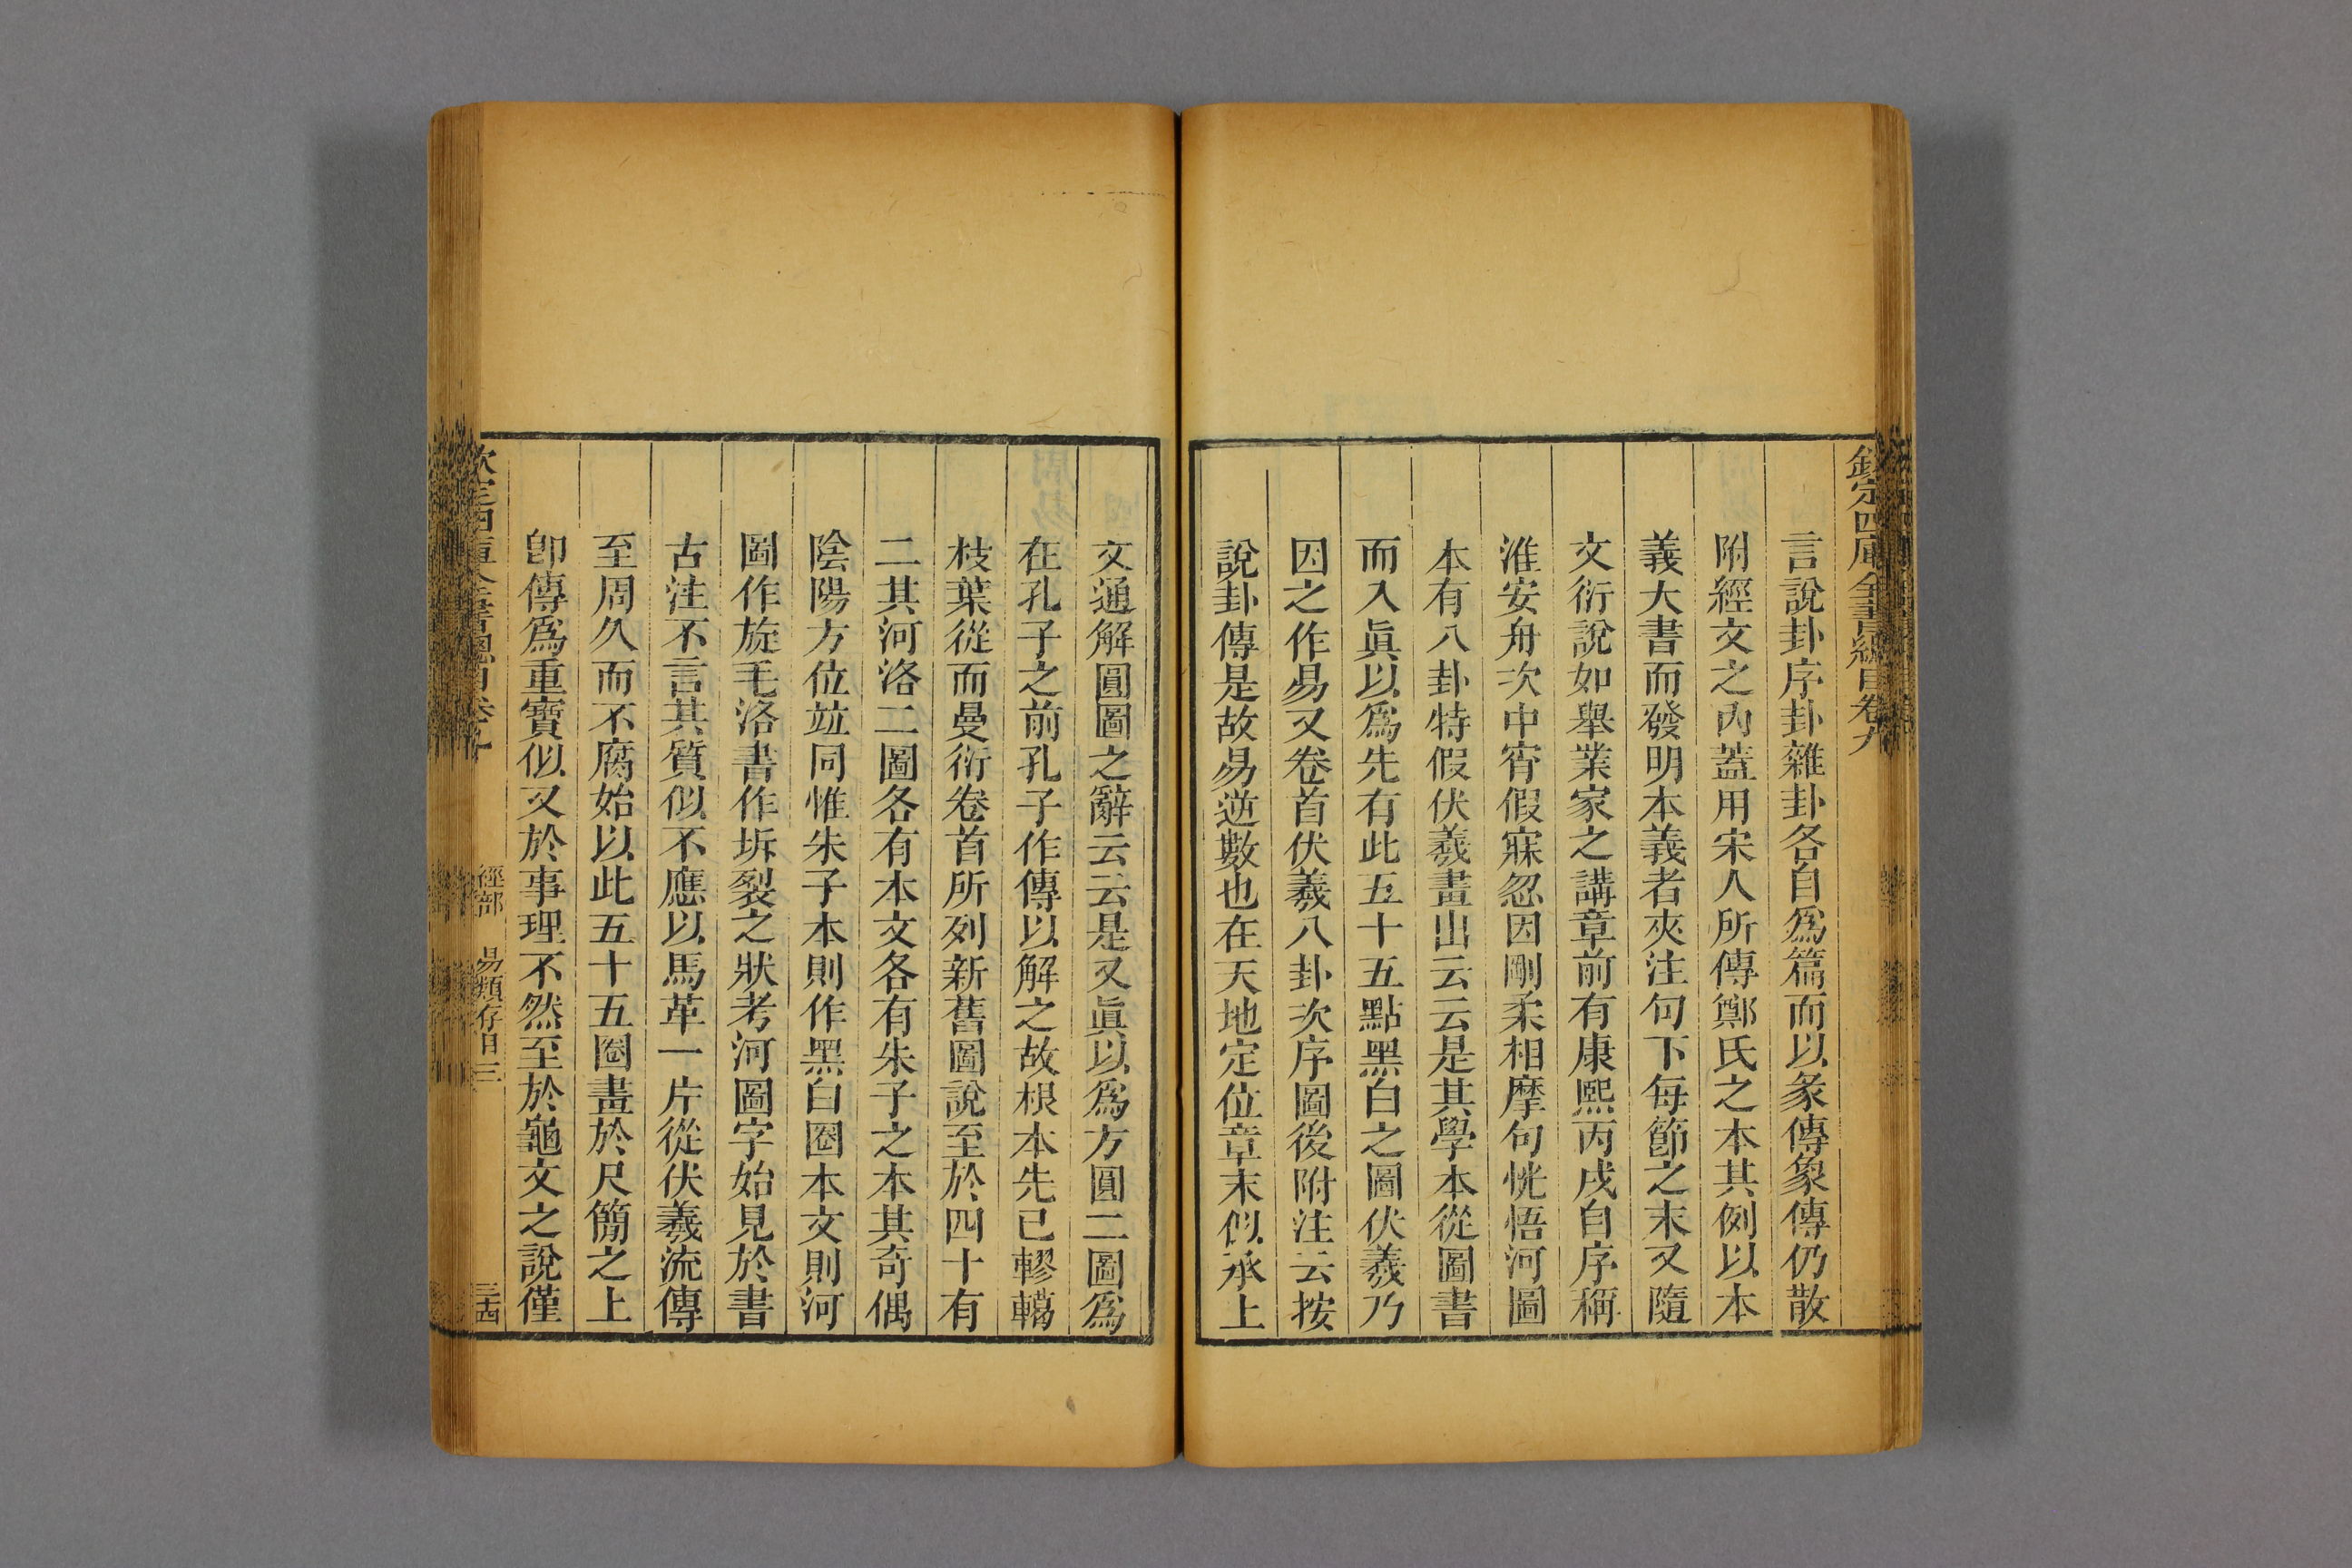 欽定四庫全書總目卷九
言說卦序卦雜卦各自爲篇而以彖傳象傳仍散
附經文之內蓋用宋人所傳鄭氏之本其例以本
義大書而發明本義者夾注句下每節之末又隨
文衍說如舉業家之講章前有康熙丙戌自序稱
淮安舟次中宵假寐忽因剛柔相摩句恍悟河圖
本有八卦特假伏羲畫出云云是其學本從圖書
而入眞以爲先有此五十五點黑白之圖伏羲乃
因之作易又卷首伏羲八卦次序圖後附注云按
說卦傳是故易逆數也在天地定位章末似承上
文通解圓圖之辭云云是又眞以爲方圓二圖爲
在孔子之前孔子作傳以解之故根本先已轇轕
枝葉從而曼衍卷首所列新舊圖說至於四十有
二其河洛二圖各有本文各有朱子之本其奇偶
陰陽方位竝同惟朱子本則作黑白圈本文則河
圖作旋毛洛書作坼裂之狀考河圖字始見於書
古注不言其質似不應以馬革一片從伏羲流傳
至周久而不腐始以此五十五圈畫於尺簡之上
卽傳爲重寶似又於事理不然至於龜文之說僅
經部 易類存目三 三四